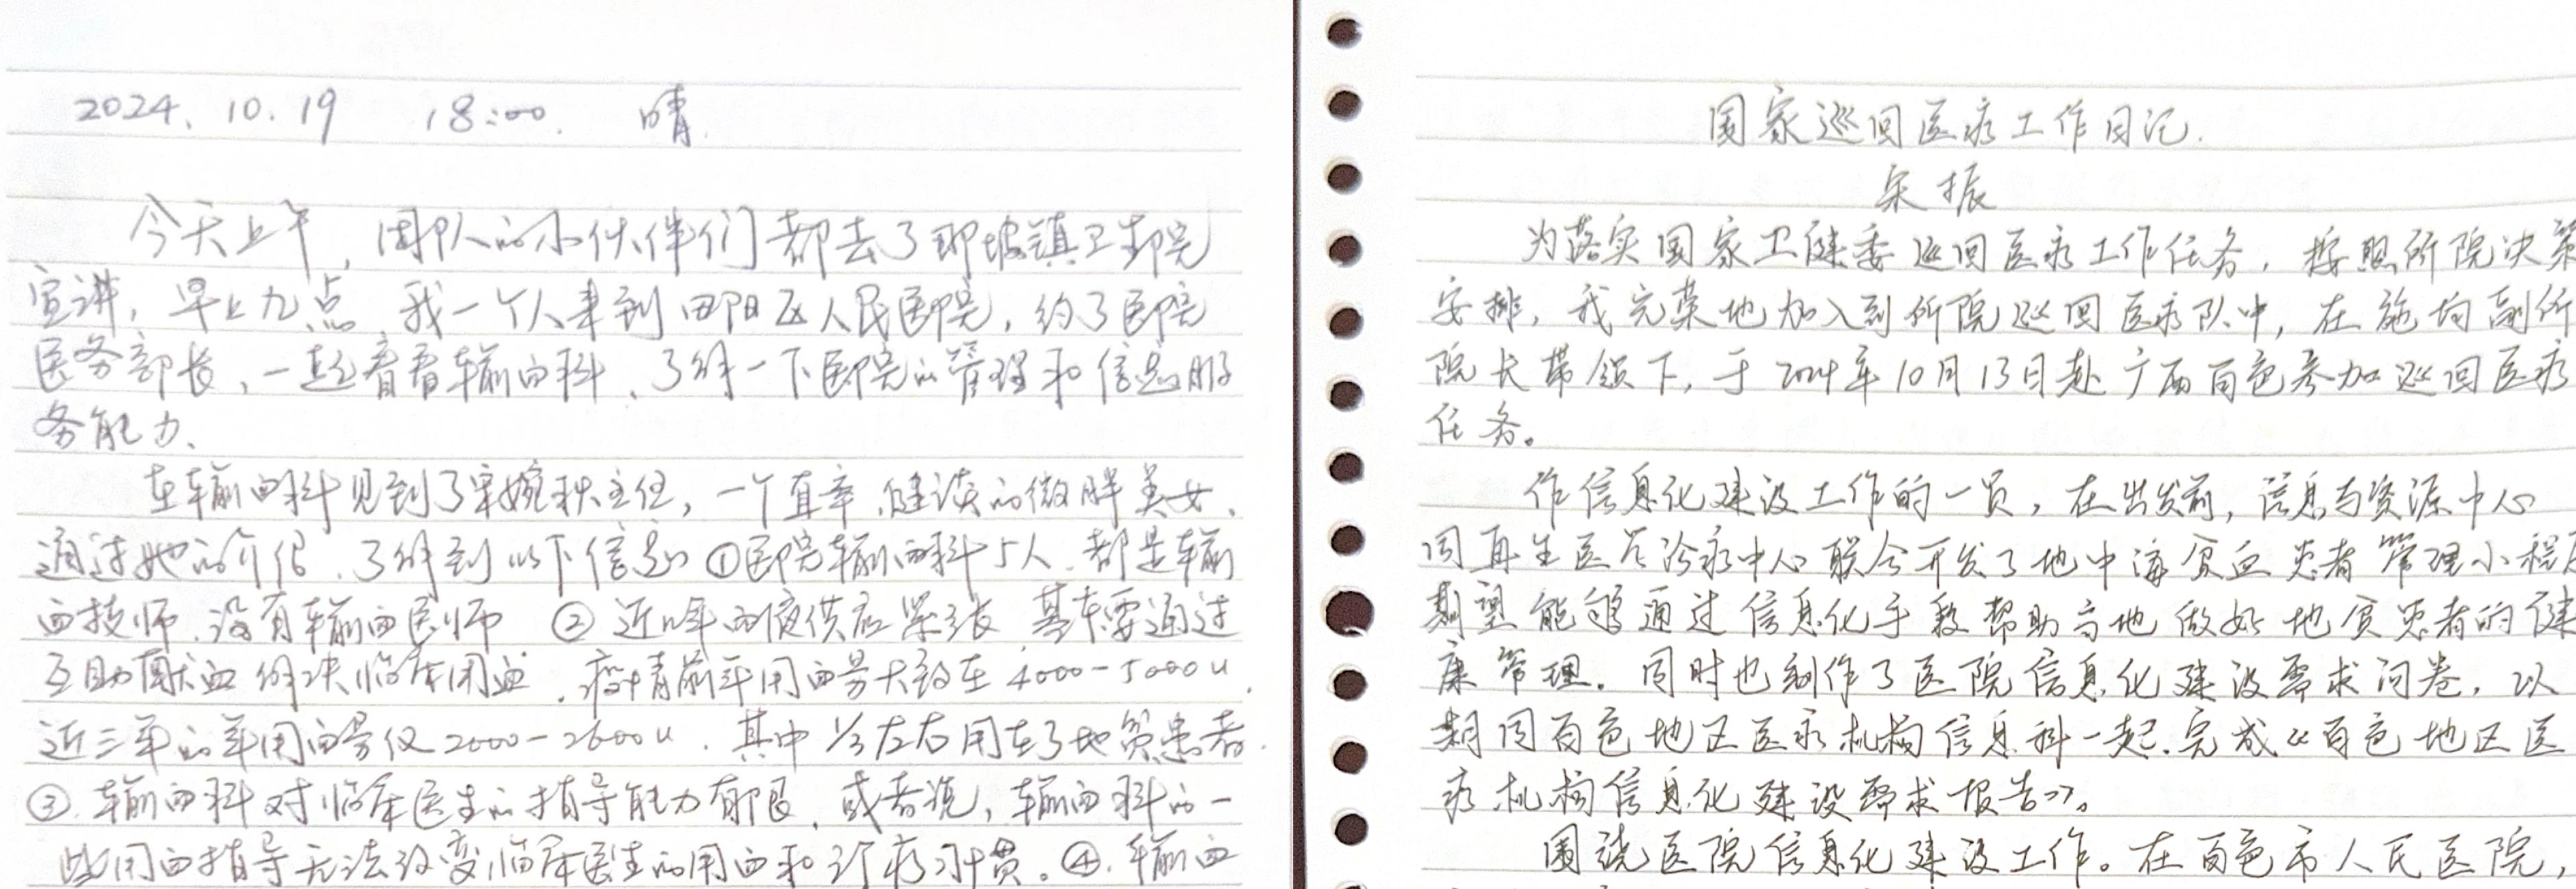 2024. 10. 19 18:00. 晴.
今天上午, 团队的小伙伴们都去了那坡镇卫生院
宣讲, 早上九点, 我一个人来到田阳区人民医院, 约了医院
医务部长, 一起看看输血科, 了解一下医院的管理和信息服
务能力、
在输血科见到了宋婉秋主任, 一个直率、健谈的微胖美女、
通过她的介绍, 了解到以下信息 ①医院输血科5人、都是输
血技师、没有输血医师 ② 近几年血液供应紧张 基本要通过
互助献血解决临床用血, 疫情前年用血量大致在4000-5000u,
近三年的年用血量仅2000-2600u, 其中⅓左右用在了地贫患者.
③. 输血科对临床医生的指导能力有限, 或者说, 输血科的一
些用血指导无法改变临床医生的用血和诊疗习惯。④. 输血
国家巡回医疗工作日记.
宋振
为落实国家卫健委巡回医疗工作任务, 按照所院决策
安排, 我光荣地加入到所院巡回医疗队中, 在施均副所
院长带领下, 于2024年10月13日赴广西百色参加巡回医疗
任务。
作信息化建设工作的一员, 在出发前, 信息与资源中心
同再生医学诊疗中心联合开发了地中海贫血患者管理小程序
期望能够通过信息化手段帮助当地做好地贫患者的健
康管理。同时也制作了医院信息化建设需求问卷, 以
期同百色地区医疗机构信息科一起、完成《百色地区医
疗机构信息化建设需求报告》。
围绕医院信息化建设工作。在百色市人民医院,